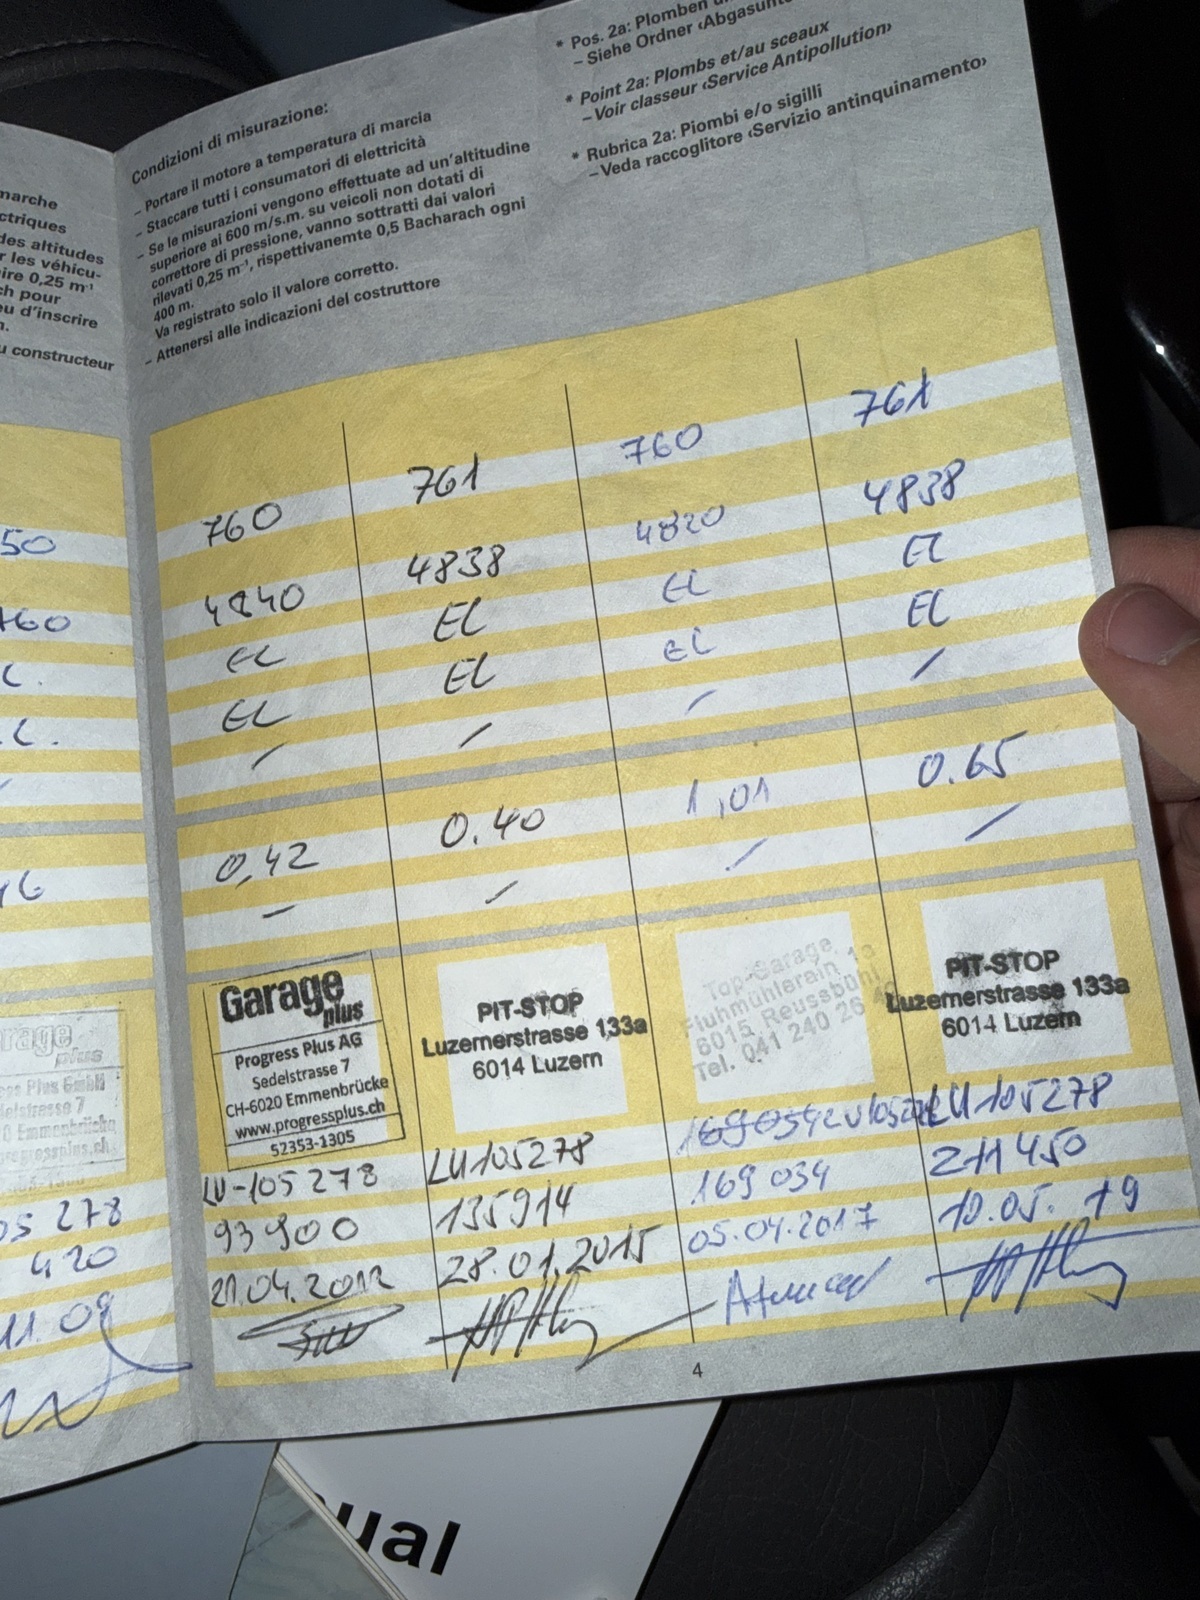 marche
ctriques
des altitudes
r les véhicu-
ire 0,25 m⁻¹
ch pour
eu d'inscrire
n.
u constructeur
50
760
C.
.C.
16
rage
plus
ess Plus GmbH
delstrasse 7
0 Emmenbrücke
rogressplus.ch
05 278
420
11.09
Condizioni di misurazione:
– Portare il motore a temperatura di marcia
– Staccare tutti i consumatori di elettricità
– Se le misurazioni vengono effettuate ad un'altitudine
superiore ai 600 m/s.m. su veicoli non dotati di
correttore di pressione, vanno sottratti dai valori
rilevati 0,25 m⁻¹, rispettivanemte 0,5 Bacharach ogni
400 m.
Va registrato solo il valore corretto.
– Attenersi alle indicazioni del costruttore
* Pos. 2a: Plomben
– Siehe Ordner ‹Abgasunt
* Point 2a: Plombs et/au sceaux
– Voir classeur ‹Service Antipollution›
* Rubrica 2a: Piombi e/o sigilli
– Veda raccoglitore ‹Servizio antinquinamento›
760
4840
EL
EL
/
0,42
–
Garage
plus
Progress Plus AG
Sedelstrasse 7
CH-6020 Emmenbrücke
www.progressplus.ch
52353-1305
LU-105 278
93 900
21.04.2012
761
4838
EL
EL
/
0.40
/
PIT-STOP
Luzernerstrasse 133a
6014 Luzern
LU105278
135914
28.01.2015
760
4820
EL
EL
/
1,01
/
Top-Garage
Fluhmühlerain 13
6015 Reussbühl
Tel. 041 240 26
169034
05.04.2017
761
4838
EL
EL
/
0.65
/
PIT-STOP
Luzernerstrasse 133a
6014 Luzern
LU105278
211450
10.05.19
4
ual